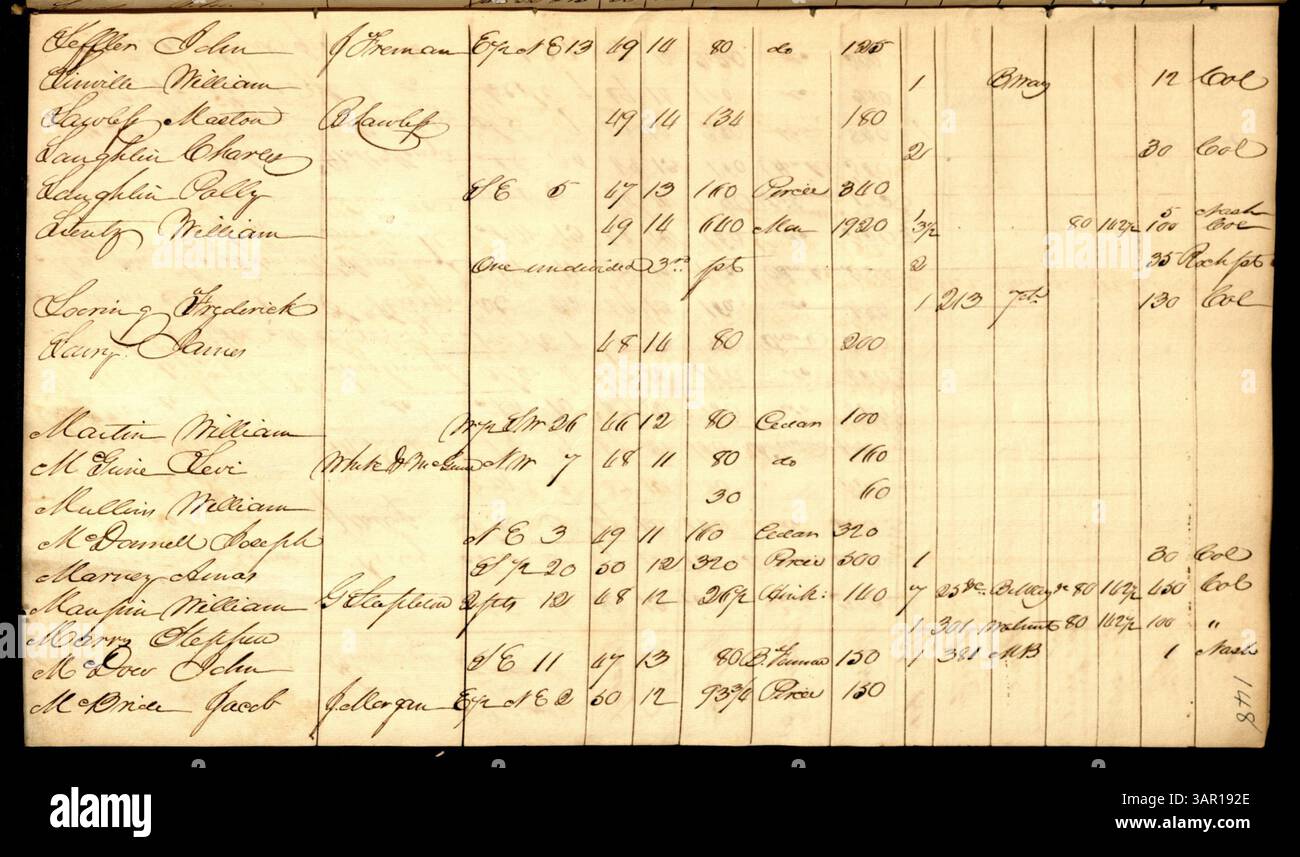 Leffler John J Freeman E½ N E 13 49 14 80 do 125
Linville William 1 B.way 12 Col
Lawless Maston B Lawless 49 14 134 180
Laughlin Charles 2 30 Col
Laughlin Polly S E 5 47 13 160 Percee 340
Lientz William 49 14 640 Mon 1920 1 5 Nash
3½ 80 142½ 100 Col
One undivided 3rd pt 2 35 Roch pt
Loering Frederick 1 213 7th 130 Col
Lowry James 48 14 80 200
Martin William W½ S W 26 46 12 80 Cedar 100
McGuire Levi White & McGuire N W 7 48 11 80 do 160
Mullins William 30 60
McDannell Joseph N E 3 49 11 160 Cedar 320
Marney Amos S ½ 20 50 12 320 Percee 500 1 30 Col
Maupin William G Stapleton 2 pts 12 48 12 26½ Hink: 140 7 25 &c. B.Way &c 80 142½ 450 Col
Merry Stephen 1 301 Walnut 80 142½ 100 "
McDow John S E 11 47 13 80 B. Femme 150 1 381 MB 1 Nash
McBride Jacob J Morgan E½ N E 2 50 12 93¾ Percee 150
148
alamy
Image ID: 3AR192E
www.alamy.com